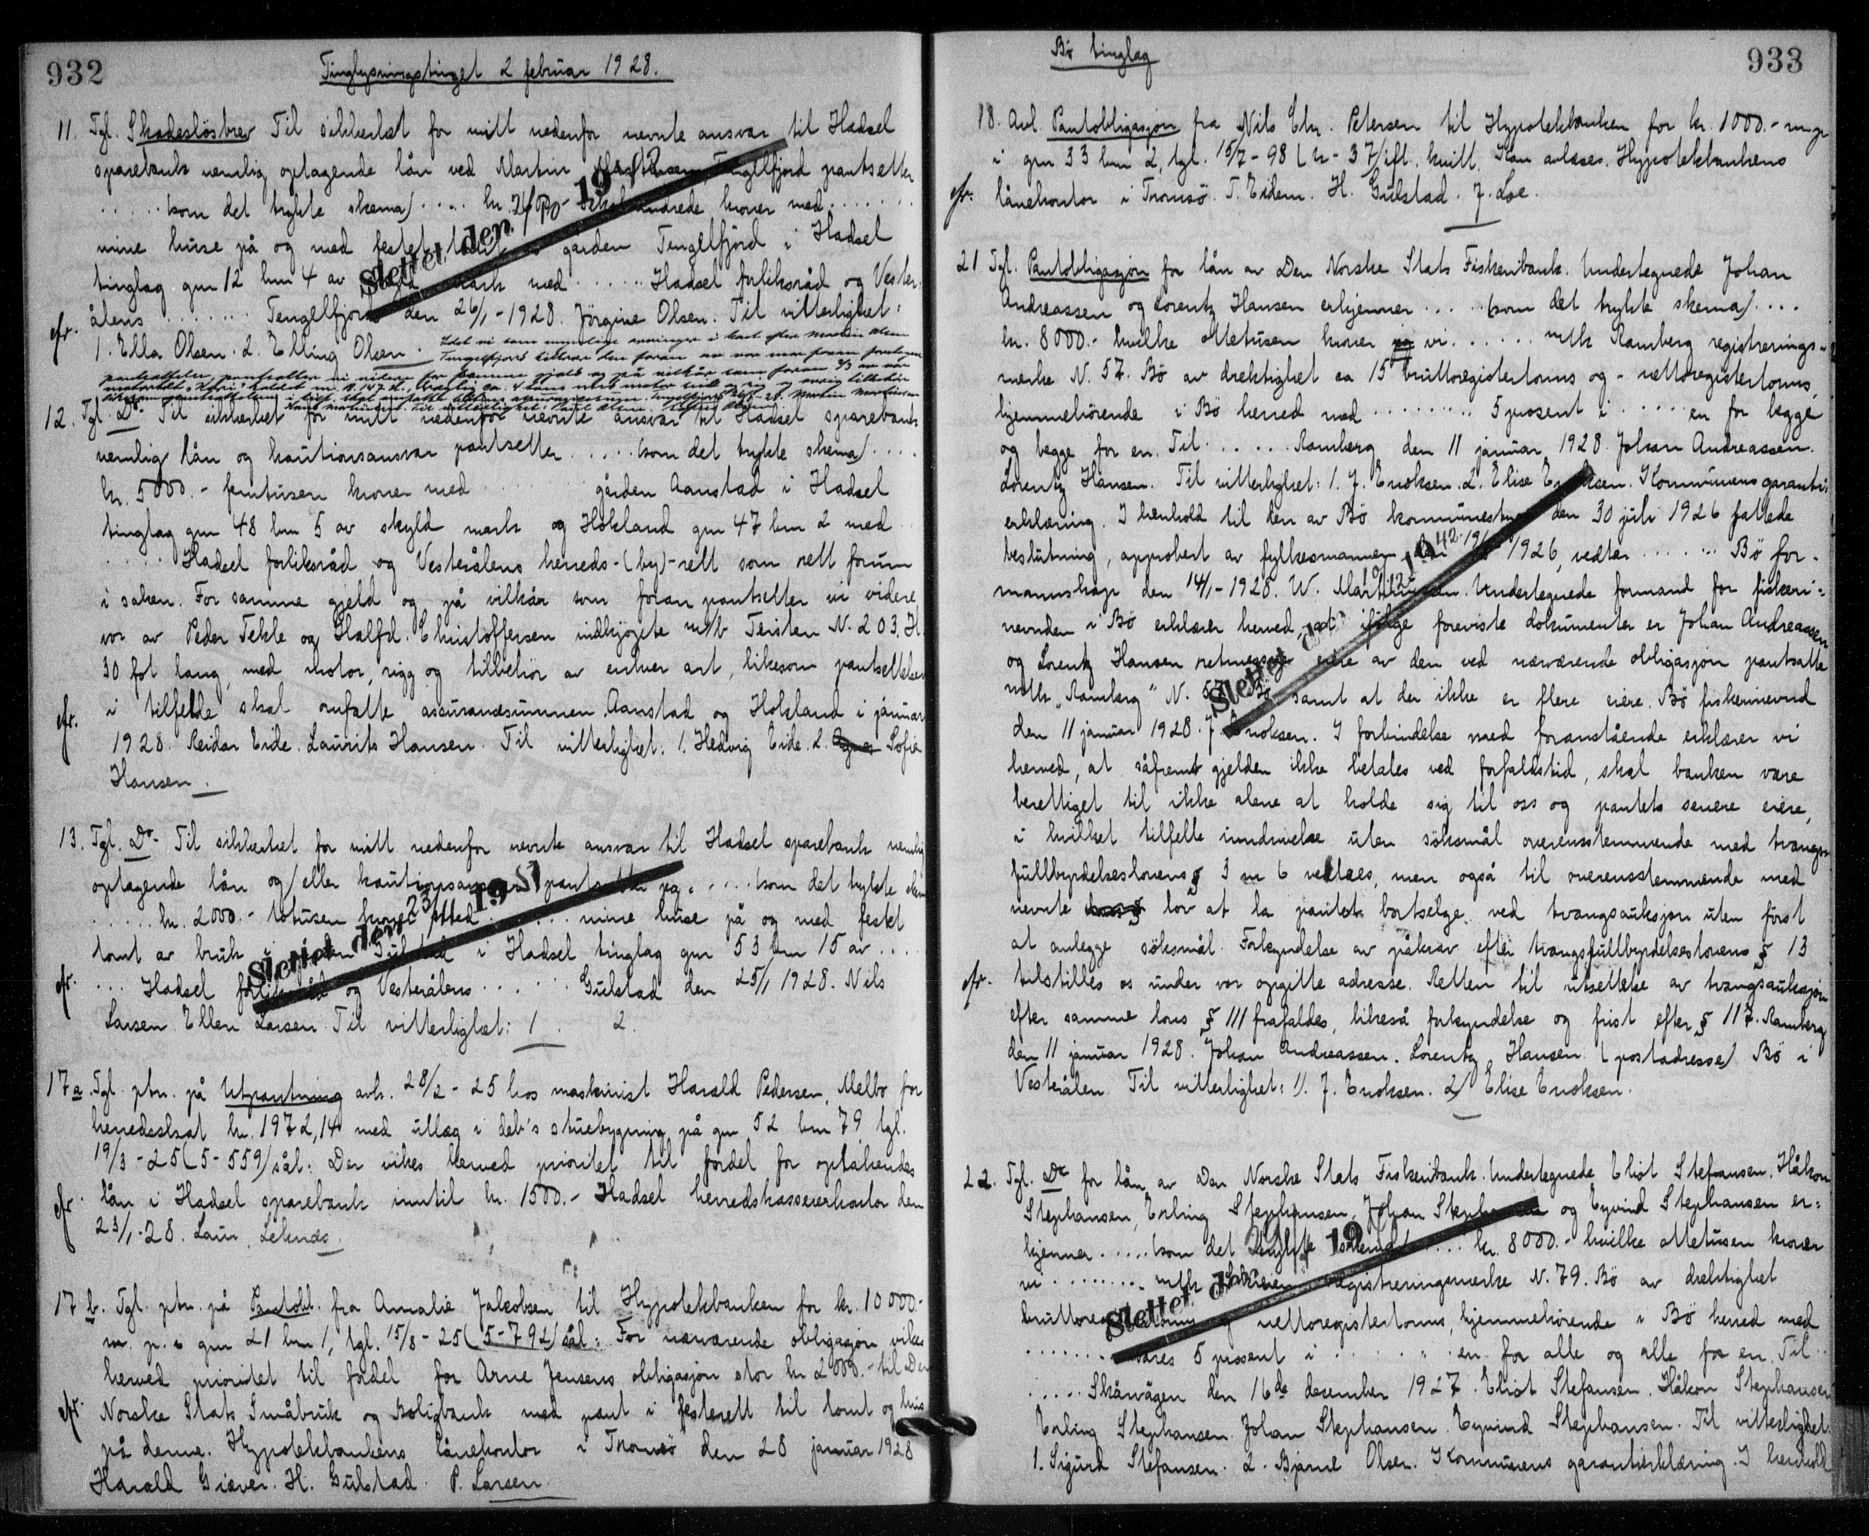 932
Tinglysningstinget 2 februar 1928.
11. Tgl. Skadeslösbrev Til sikkerhet for mitt nedenfor nevnte ansvar til Hadsel
sparebank nemlig optagende lån ved Martin Tengelfjord pantsetter
..... (som det trykte skema) .... kr. kroner med ......
mine huse på og med festet gården Tengelfjord i Hadsel
tinglag gnr 12 bnr 4 av skyld mark med ..... Hadsel forliksråd og Vester-
ålens ....... Tengelfjord den 26/1-1928. Jörgine Olsen. Til vitterlighet:
efr. 1. Ella Olsen. 2. Elling Olsen.
12. Tgl. Do. Til sikkerhet for mitt nedenfor nevnte ansvar til Hadsel sparebank
nemlig lån og kautionsansvar pantsetter ..... (som det trykte skema) ....
kr. 5000.- femtusen kroner med ...... gården Aanstad i Hadsel
tinglag gnr 48 bnr 5 av skyld mark og Hokland gnr 47 bnr 2 med
..... Hadsel forliksråd og Vesterålens herreds-(by)-rett som rett forum
i saken. For samme gjeld og på vilkår som foran pantsetter vi videre
vor av Peder Tekle og Halfd. Christoffersen indkjøpte m/b Teisten N. 203. H.
30 fot lang, med motor, rigg og tilbehör av enhver art, likesom pantsettelsen
efr. i tilfelde skal omfatte assuransesummen. Aanstad og Hokland i januar
1928. Reidar Eide. Laurits Hansen. Til vitterlighet: 1. Hedvig Eide. 2. Sofie
Hansen.
13. Tgl. Do. Til sikkerhet for mitt nedenfor nevnte ansvar til Hadsel sparebank nemlig
optagende lån og/eller kautionsansvar pantsetter jeg ..... (som det trykte
..... kr. 2000.- totusen kroner med ...... mine huse på og med festet
tomt av bruk Gulstad i Hadsel tinglag gnr 53 bnr 15 av ....
efr. ... Hadsel forliksråd og Vesterålens ...... Gulstad den 25/1 1928. Nils
Larsen. Ellen Larsen. Til vitterlighet: 1. 2.
17a. Tgl. ptn. på Utpantning avh. 28/2-25 hos maskinist Harald Pedersen, Melbo for
herredsskat kr. 1972,14 med utlæg i deb's stuebygning på gnr 52 bnr 79 tgl.
19/3-25 (5-559) sål: Der vikes herved prioritet til fordel for optakendes
efr. lån i Hadsel sparebank inntil kr. 1500.- Hadsel herredskassererkontor den
23/1-28. Laur. Leknes.
17b. Tgl. ptn. på Pantobl. fra Amalie Jakobsen til Hypotekbanken for kr. 10000.-
m. p. i gnr 21 bnr 1, tgl. 15/8-25 (5-792) sål: For nærværende obligasjon vikes
herved prioritet til fordel for Arne Jensens obligasjon stor kr 2000.- til Den
efr. Norske Stats Småbruk og Boligbank med pant i festerett til tomt og hus
på denne. Hypotekbankens lånekontor i Tromsö den 28 januar 1928
Harald Giæver. H. Gulstad. P. Larsen.
Slettet den 19
Slettet den 23/11 1951
Bö tinglag
933
18. Avl. Pantobligasjon fra Nils Chr. Petersen til Hypotekbanken for kr. 1000.-
i gnr 33 bnr 2, tgl. 15/7-98 ift. kvitt. Kan avlæses. Hypotekbankens
efr. lånekontor i Tromsö. T. Eidem. H. Gulstad. J. Lie.
21. Tgl. Pantobligasjon for lån av Den Norske Stats Fiskeribank. Undertegnede Johan
Andreassen og Lorentz Hansen erkjenner ..... (som det trykte skema) ....
kr. 8000.- hvilke ottetusen kroner vi ...... m/k Ramberg registrerings-
merke N. 57. Bö av drektighet ca 15 bruttoregistertonns og - nettoregistertonns,
hjemmehörende i Bö herred med ......... 5 prosent i ..... en for begge
og begge for en. Til ...... Ramberg den 11 januar 1928. Johan Andreassen.
Lorentz Hansen. Til vitterlighet: 1. J. Enoksen. 2. Elise Enoksen. Kommunens garanti-
erklæring. I henhold til den av Bö kommunestyre den 30 juli 1926 fattede
beslutning, approbert av fylkesmannen den 1926, vedtar ....... Bö for-
mannskap den 14/1-1928. W. Marthinsen. Undertegnede formand for fiskeri-
nevnden i Bö erklærer herved, at ifölge foreviste dokumenter er Johan Andreassen
og Lorentz Hansen retmessige eiere av den ved nærværende obligasjon pantsatte
m/k "Ramberg" N. 57. Bö samt at der ikke er flere eiere. Bö fiskerinevnd
den 11 januar 1928. J. Enoksen. I forbindelse med foranstående erklærer vi
herved, at såfremt gjelden ikke betales ved forfaldstid, skal banken være
berettiget til ikke alene at holde sig til oss og pantets senere eiere,
i hvilket tilfelle inndrivelse uten söksmål overensstemmende med tvangs-
fullbyrdelseslovens § 3 nr 6 vedtaes, men også til overensstemmende med
nevnte lov at la pantet bortselge ved tvangsauksjon uten först
at anlegge söksmål. Forkyndelse av påkrav efter tvangsfullbyrdelseslovens § 13
efr. tilstilles os under vor opgitte adresse. Retten til utsettelse av tvangsauksjon
efter samme lovs § 111 frafaldes, likeså forkyndelse og frist efter § 117. Ramberg
den 11 januar 1928. Johan Andreassen. Lorentz Hansen. (postadresse) Bö i
Vesterålen. Til vitterlighet: 1). J. Enoksen. 2) Elise Enoksen.
22. Tgl. Do for lån av Den Norske Stats Fiskeribank. Undertegnede Eliot Stefansen, Håkon
Stephansen, Erling Stephansen, Johan Stephansen og Eyvind Stephansen er-
kjenner ..... (som det trykte skema) .... kr. 8000.- hvilke ottetusen kroner
vi ......... m/k registreringsmerke N. 79. Bö av drektighet
bruttoregistertonns og nettoregistertonns, hjemmehörende i Bö herred med
........ svares 5 prosent i ....... en for alle og alle for en. Til ..
..... Skårvågen den 16de desember 1927. Eliot Stefansen. Håkon Stephansen
Erling Stephansen. Johan Stephansen. Eyvind Stephansen. Til vitterlighet:
1. Sigurd Stefansen. 2. Bjarne Olsen. Kommunens garantierklæring. I henhold
Slettet den 1942
Slettet den 19